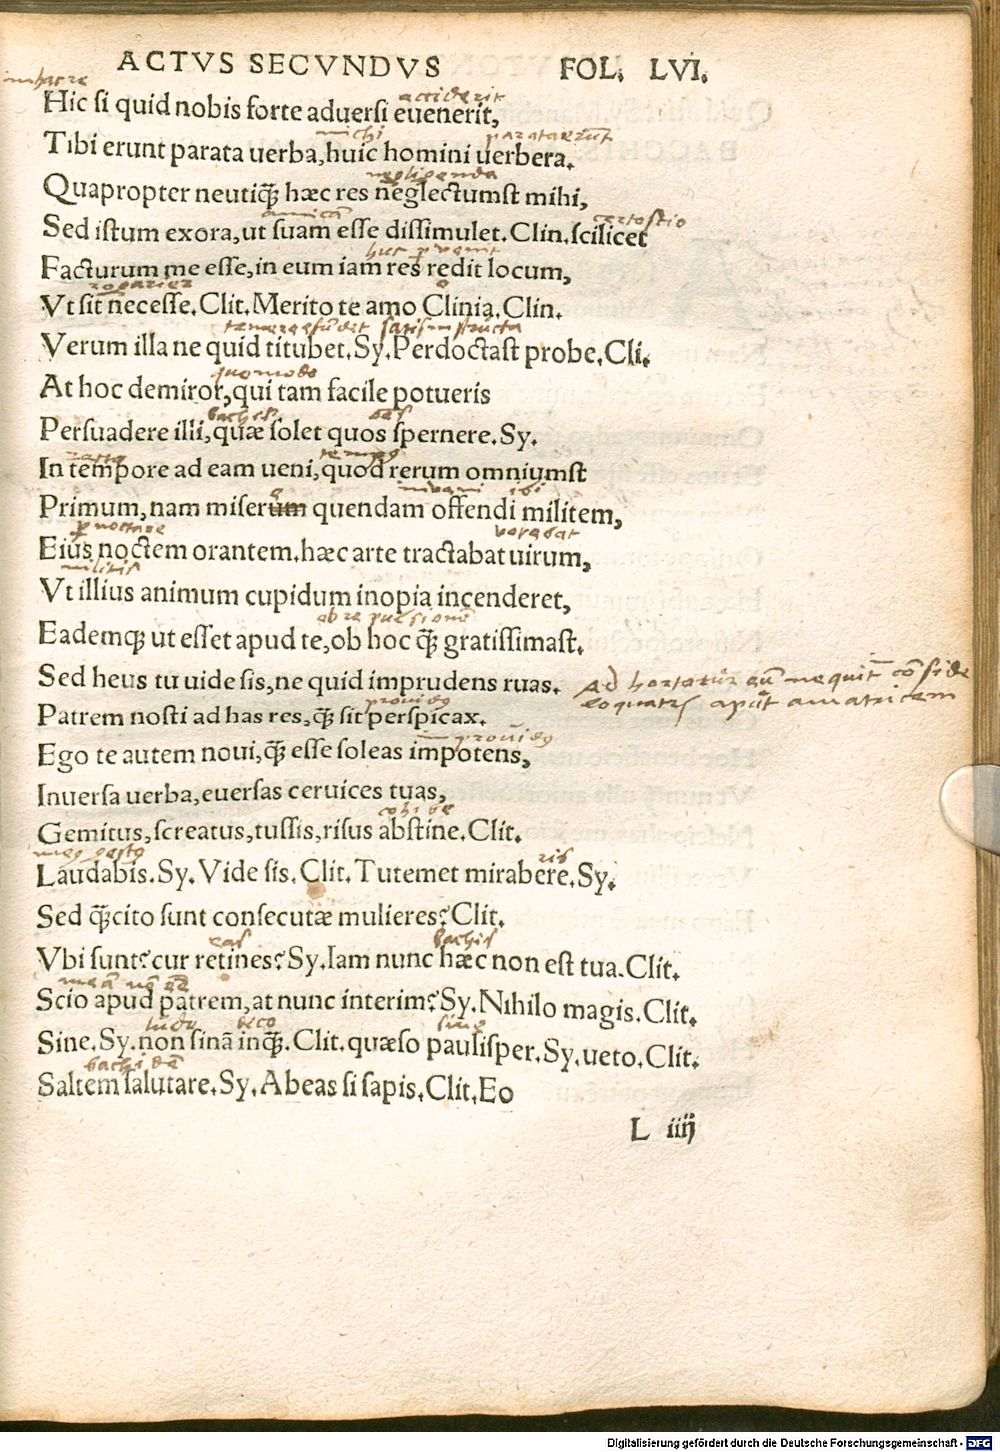 ACTVS SECVNDVS FOL. LVI.
in hac re acciderit
Hic si quid nobis forte aduersi euenerit,
michi parata erūt
Tibi erunt parata uerba, huic homini uerbera.
negligenda
Quapropter neutiq̃ hæc res neglectumst mihi,
amicā certo scio
Sed istum exora, ut suam esse dissimulet. Clin. scilicet
huc puenit
Facturum me esse, in eum iam res redit locum,
o
Vt sit necesse. Clit. Merito te amo Clinia. Clin.
satis instructa
Verum illa ne quid titubet. Sy. Perdoctast probe. Cli.
quomodo
At hoc demiror, qui tam facile potueris
bachis
Persuadere illi, quæ solet quos spernere. Sy.
In tempore ad eam ueni, quod rerum omniumst
inveni ibi
Primum, nam miserum quendam offendi militem,
pnoctare
Eius noctem orantem. hæc arte tractabat uirum,
militis
Vt illius animum cupidum inopia incenderet,
Eademq; ut esset apud te, ob hoc q̃ gratissimast.
Sed heus tu uide sis, ne quid imprudens ruas. Ad hortatur eū ne quit cō side
loquatr apud amatricem
Patrem nosti ad has res, q̃ sit perspicax.
Ego te autem noui, q̃ esse soleas impotens,
Inuersa uerba, euersas ceruices tuas,
cohibe
Gemitus, screatus, tussis, risus abstine. Clit.
ris
Laudabis. Sy. Vide sis. Clit. Tutemet mirabere. Sy.
Sed q̃cito sunt consecutæ mulieres? Clit.
eas bachis
Vbi sunt? cur retines? Sy. Iam nunc hæc non est tua. Clit.
Scio apud patrem, at nunc interim? Sy. Nihilo magis. Clit.
sino
Sine. Sy. non sinā inq̃. Clit. quæso paulisper. Sy. ueto. Clit.
Saltem salutare. Sy. Abeas si sapis. Clit. Eo
L iiij
Digitalisierung gefördert durch die Deutsche Forschungsgemeinschaft - DFG